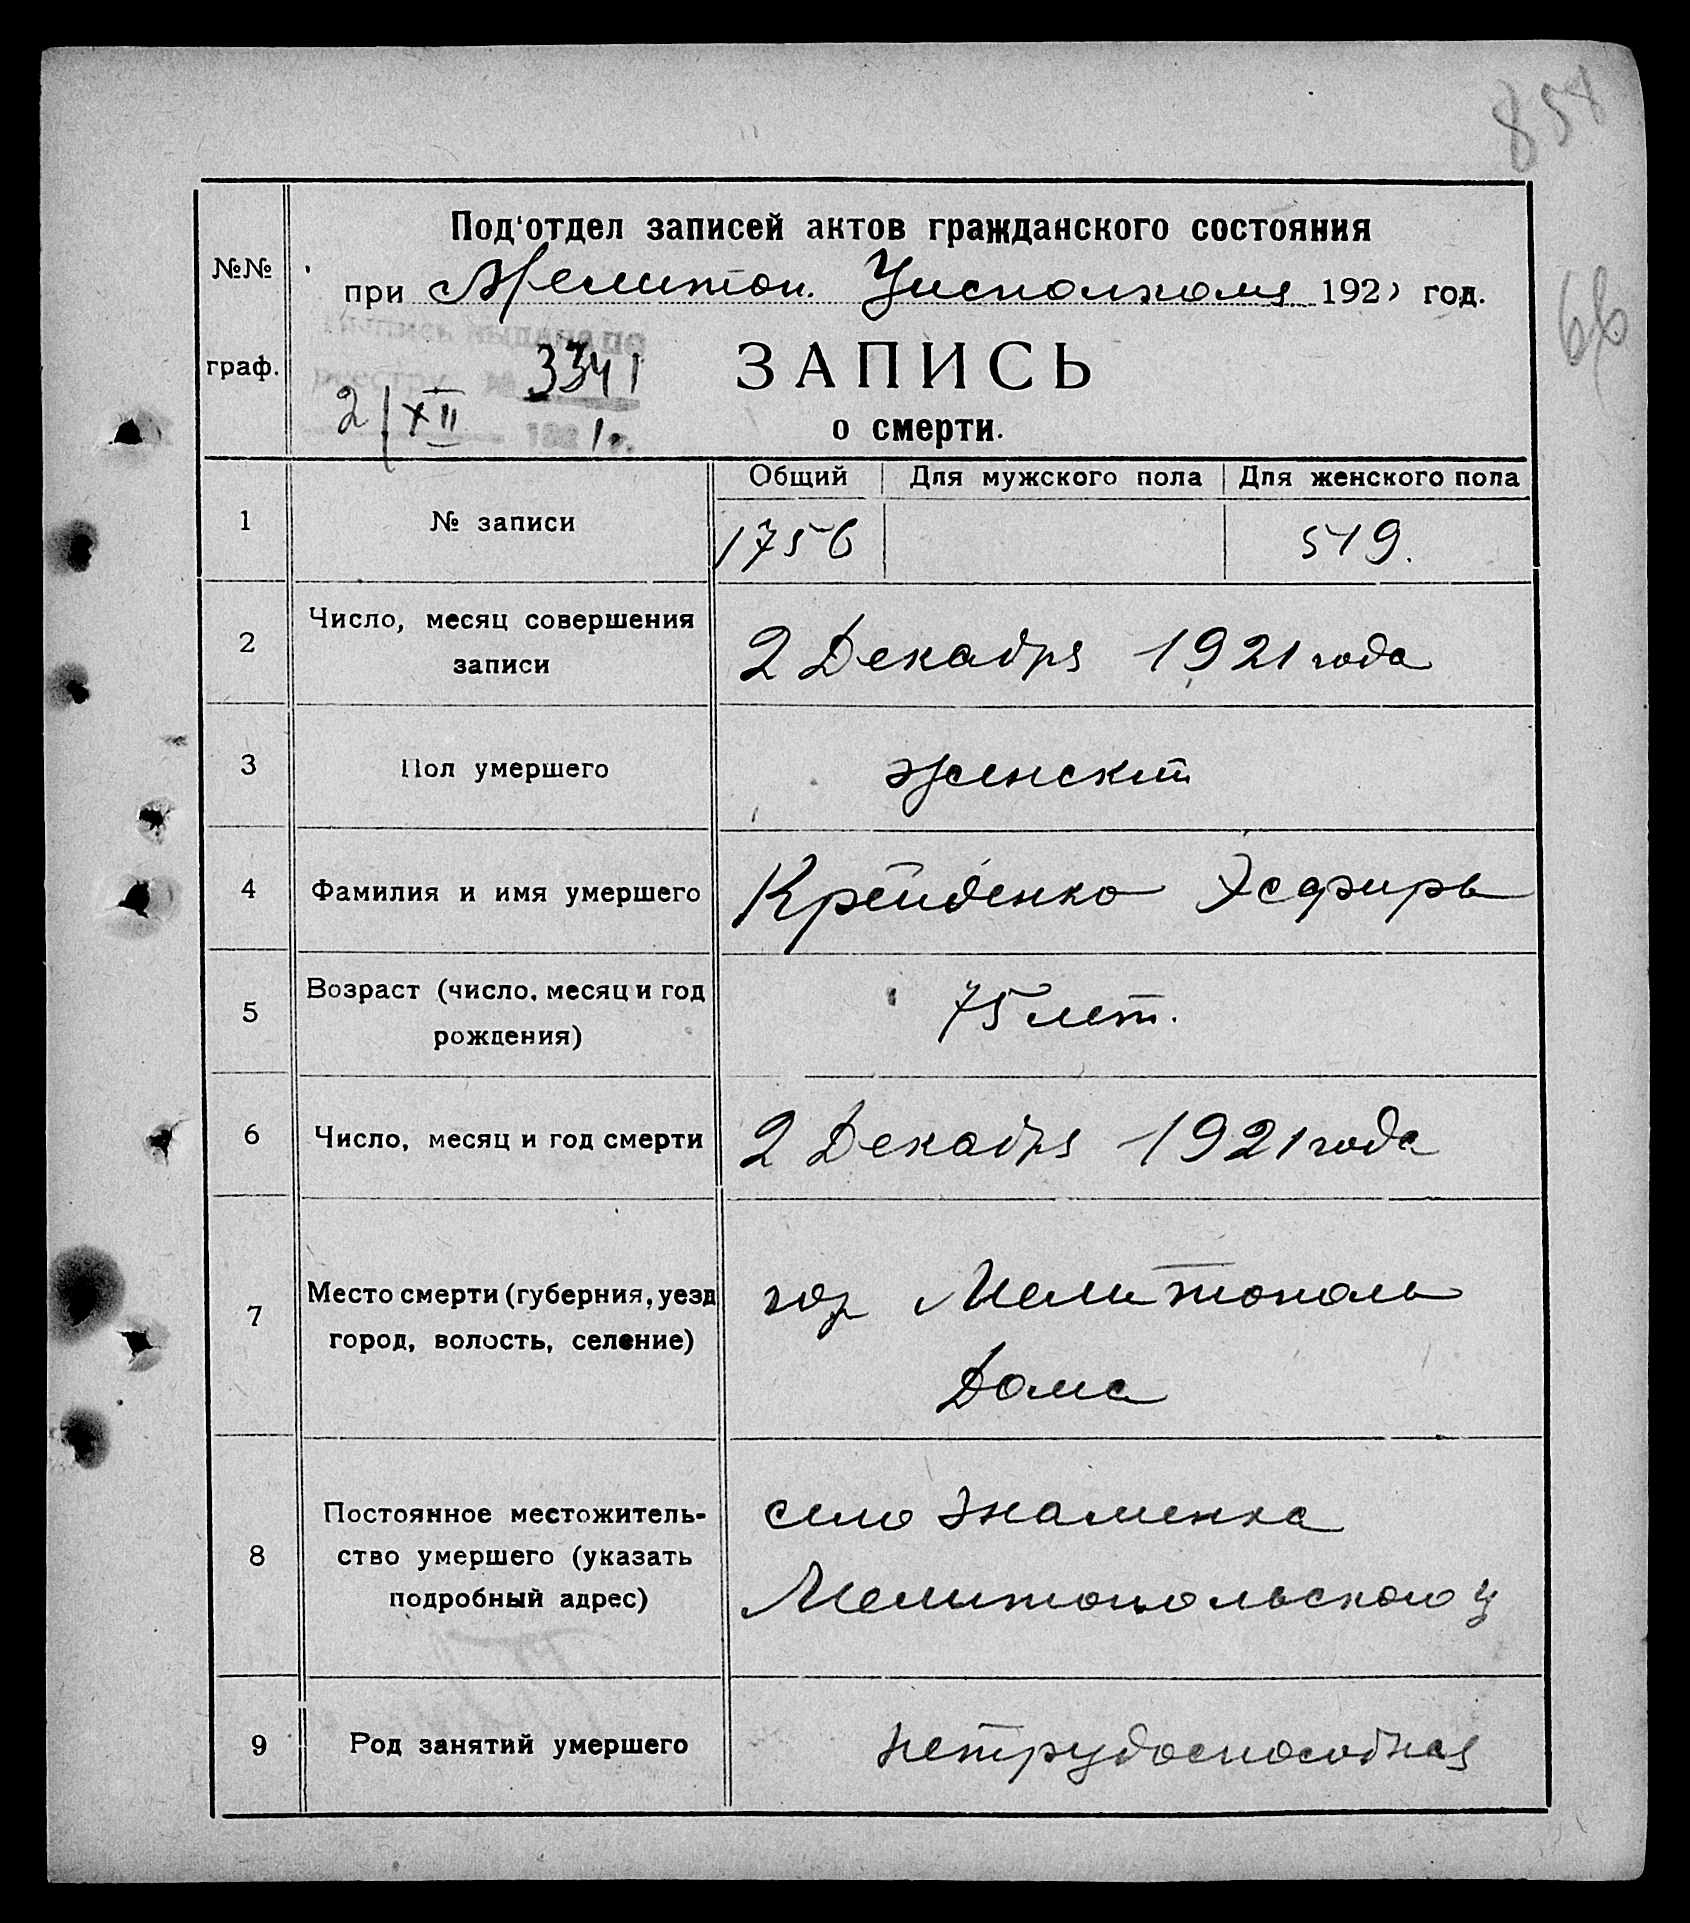 858
66
№№ граф.
Под'отдел записей актов гражданского состояния
при Мелитоп. Уисполкоме 1921 год.
Выпись выдана по
реестру № 3341
2/XII 1921 г.
ЗАПИСЬ
о смерти.
Общий Для мужского пола Для женского пола
1 № записи 1756 519.
2 Число, месяц совершения
записи
2 Декабря 1921 года
3 Пол умершего женский
4 Фамилия и имя умершего Крейденко Эсфирь
5 Возраст (число, месяц и год
рождения)
75 лет.
6 Число, месяц и год смерти 2 Декабря 1921 года
7 Место смерти (губерния, уезд
город, волость, селение)
гор Мелитополь
Дома
8 Постоянное местожитель-
ство умершего (указать
подробный адрес)
село Знаменка
Мелитопольского у
9 Род занятий умершего нетрудоспособная